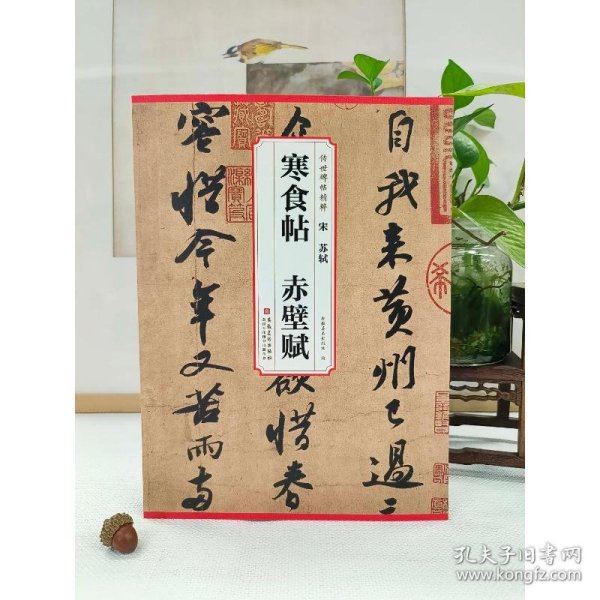 自我来黄州已過三
欲惜春
容惜今年又苦雨两
传世碑帖精粹 宋 苏轼
寒食帖 赤壁赋
安徽美术出版社
孔夫子旧书网
www.kongfz.com